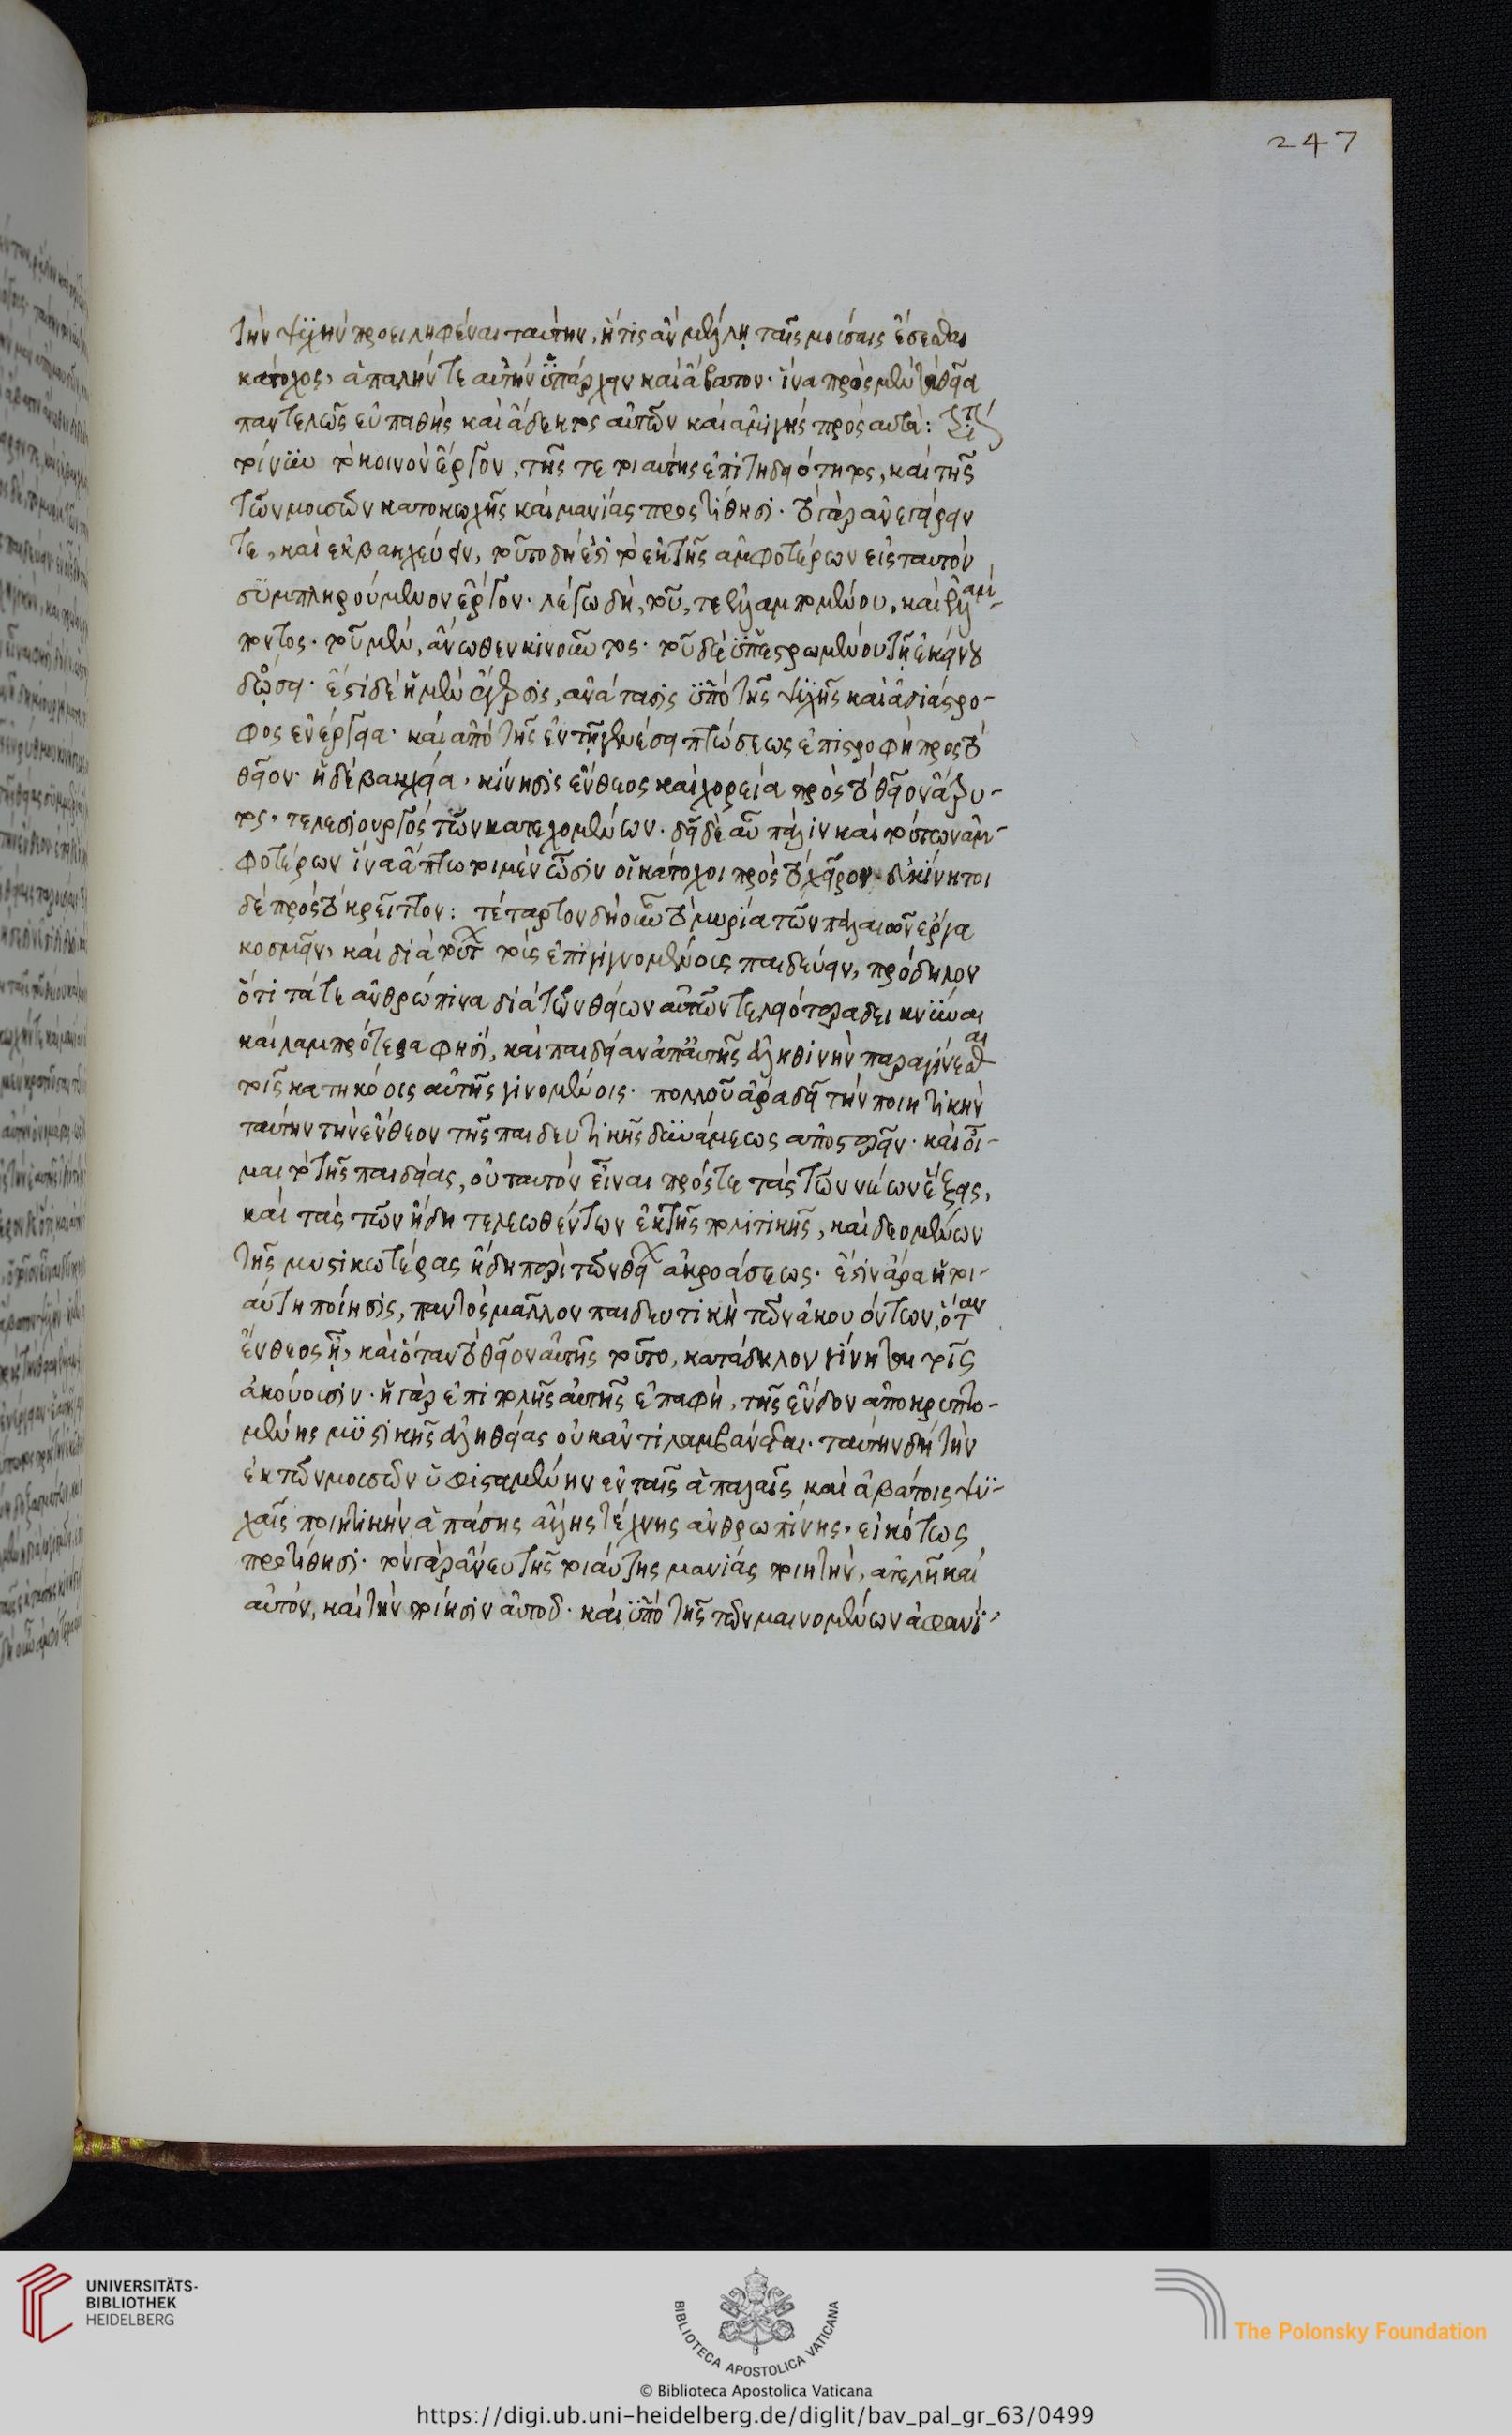 247
τὴν ψυχὴν προειληφέναι ταύτην, ἥτις ἂν μέλλῃ ταῖς μούσαις ἔσεσθαι
κάτοχος, ἁπαλήν τε αὐτὴν ὑπάρχειν καὶ ἄβατον. ἵνα πρὸς μὲν τὰ θεῖα
παντελῶς εὐπαθὴς καὶ ἄδεκτος αὐτῶν καὶ ἀμιγὴς πρὸς αὐτά:
τρίτον τὸ κοινὸν ἔργον, τῆς τε τοιαύτης ἐπιτηδειότητος, καὶ τῆς
τῶν μουσῶν κατοκωχῆς καὶ μανίας προστίθησι. τὸ γὰρ ἀνεγείρειν
τε, καὶ ἐκβακχεύειν, τοῦτο δή ἐστι τὸ ἐκ τῆς ἀμφοτέρων εἰς ταυτὸν
συμπληρούμενον ἔργον. λέγω δὴ, τοῦ, τε ἐλλαμπομένου, καὶ ἐλλάμ-
ποντος. τοῦ μὲν, ἄνωθεν κινοῦντος. τοῦ δὲ ὑπεστρωμένου τῇ ἐκείνου
δόσει. ἔστι δὲ ἡ μὲν ἔγερσις, ἀνάτασις ὑπὸ τῆς ψυχῆς καὶ ἀδιάστρο-
φος ἐνέργεια. καὶ ἀπὸ τῆς ἐν τῇ γενέσει πτώσεως ἐπιστροφὴ πρὸς τὸ
θεῖον. ἡ δὲ βακχεία, κίνησις ἔνθεος καὶ χορεία πρὸς τὸ θεῖον ἄτρυ-
τος, τελεσιουργὸς τῶν κατεχομένων. δεῖ δὲ αὖ πάλιν καὶ τούτων ἀμ-
φοτέρων ἵνα ἄπτωτοι μὲν ὦσιν οἱ κάτοχοι πρὸς τὸ χεῖρον. εὐκίνητοι
δὲ πρὸς τὸ κρεῖττον: τέταρτον δὴ οὖν τὸ μυρία τῶν παλαιῶν ἔργα
κοσμεῖν, καὶ διὰ τούτων τοὺς ἐπιγιγνομένοις παιδεύειν, πρόδηλον
ὅτι τά τε ἀνθρώπινα διὰ τῶν θείων αὐτῶν τελειότερα δεικνύναι
καὶ λαμπρότερα φησί, καὶ παιδείαν ἀπ' αὐτῆς ἀληθινὴν παραγίνεσθαι
τοῖς κατηκόοις αὐτῆς γινομένοις. πολλοῦ ἄρα δεῖ τὴν ποιητικὴν
ταύτην τὴν ἔνθεον τῆς παιδευτικῆς δυνάμεως ἀποστερεῖν. καὶ οἶ-
μαι τὸ τῆς παιδείας, οὐ ταυτὸν εἶναι πρός τε τὰς τῶν νέων ἕξεις,
καὶ τὰς τῶν ἤδη τελεωθέντων ἐκ τῆς πολιτικῆς, καὶ δεομένων
τῆς μυστικωτέρας ἤδη περὶ τῶν θείων ἀκροάσεως. ἔστιν ἄρα ἡ τοι-
αύτη ποίησις, παντὸς μᾶλλον παιδευτικὴ τῶν ἀκουόντων, ὅταν
ἔνθεος ᾖ, καὶ ὅταν τὸ θεῖον αὐτῆς τοῦτο, κατάδηλον γίνηται τοῖς
ἀκούουσιν. ἡ γὰρ ἐπιπολῆς αὐτῆς ἐπαφὴ, τῆς ἔνδον ἀποκρυπτο-
μένης μυστικῆς ἀληθείας οὐκ ἀντιλαμβάνεται. ταύτην δὴ τὴν
ἐκ τῶν μουσῶν ὑφισταμένην ἐν ταῖς ἁπαλαῖς καὶ ἀβάτοις ψυ-
χαῖς ποιητικὴν ἁπάσης ἄλλης τέχνης ἀνθρωπίνης, εἰκότως
προτίθησι. τὸν γὰρ ἄνευ τῆς τοιαύτης μανίας ποιητὴν, ἀτελῆ καὶ
αὐτὸν, καὶ τὴν ποίησιν αὐτοῦ. καὶ ὑπὸ τῆς τῶν μαινομένων ἀφανί-
UNIVERSITÄTS-
BIBLIOTHEK
HEIDELBERG
BIBLIOTECA APOSTOLICA VATICANA
© Biblioteca Apostolica Vaticana
The Polonsky Foundation
https://digi.ub.uni-heidelberg.de/diglit/bav_pal_gr_63/0499